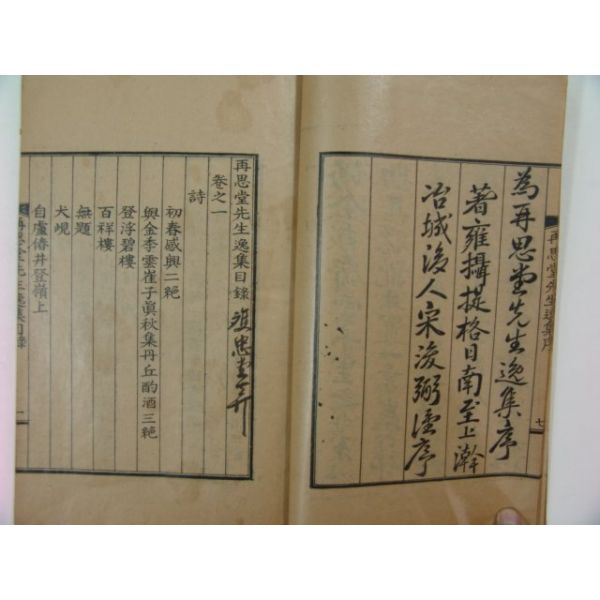 為再思堂先生逸集序
著雍攝提格日南至上澣
冶城後人宋浚弼謹序
再思堂先生逸集序
七
再思堂先生逸集目錄
卷之一
詩
初春感興二絶
與金季雲崔子眞秋集丹丘酌酒三絶
登浮碧樓
百祥樓
無題
犬峴
自盧脩井登嶺上
再思堂先生逸集目錄
一